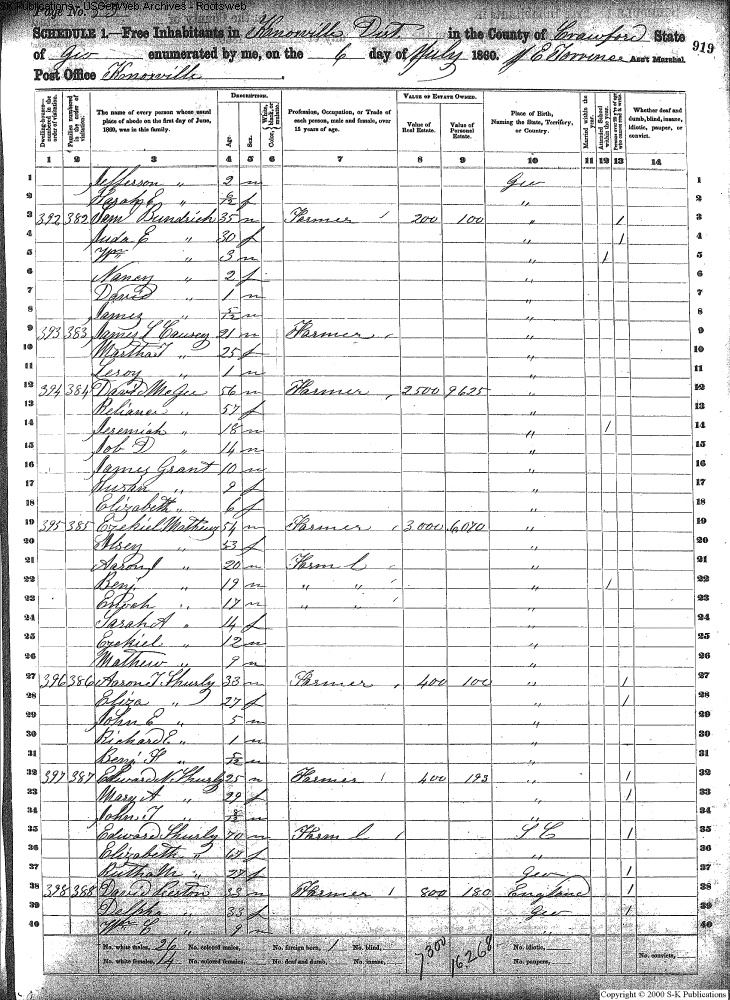 SK Publications - USGenWeb Archives - Rootsweb
Page No. 53
SCHEDULE 1.—Free Inhabitants in Knoxville Dist in the County of Crawford State
of Geo enumerated by me, on the 6 day of July 1860. J E Torrence Ass't Marshal.
Post Office Knoxville
919
Dwelling-houses—numbered in the order of visitation.
Families numbered in the order of visitation.
The name of every person whose usual place of abode on the first day of June, 1860, was in this family.
DESCRIPTION.
Age.
Sex.
Color, White, black, or mulatto.
Profession, Occupation, or Trade of each person, male and female, over 15 years of age.
VALUE OF ESTATE OWNED.
Value of Real Estate.
Value of Personal Estate.
Place of Birth, Naming the State, Territory, or Country.
Married within the year.
Attended School within the year.
Persons over 20 y'rs of age who cannot read & write.
Whether deaf and dumb, blind, insane, idiotic, pauper, or convict.
1 2 3 4 5 6 7 8 9 10 11 12 13 14
1 Jefferson " 2 m Geo 1
2 Sarah E " f " 2
3 392 382 Sam Bundrick 35 m Farmer / 200 100 " / 3
4 Juda E " 30 f " / 4
5 Wm " 3 m " / 5
6 Nancy " 2 f " 6
7 David " 1 m " 7
8 James " m " 8
9 393 383 James L Causey 21 m Farmer " 9
10 Martha J " 25 f " 10
11 Leroy " 1 m " 11
12 394 384 David McGee 56 m Farmer 2500 9625 " 12
13 Reliance " 57 f " 13
14 Jeremiah " 18 m " / 14
15 Job D " 14 m " 15
16 James Grant 10 m " 16
17 Susan " 9 f " 17
18 Elizabeth " 6 f " 18
19 395 385 Ezekiel Mathews 54 m Farmer 3000 6090 " 19
20 Alsey " 53 f " 20
21 Aaron " 20 m Farm L " 21
22 Benj " 19 m " " " / 22
23 Enoch " 17 m " " " 23
24 Sarah A " 14 f " 24
25 Ezekiel " 12 m " 25
26 Mathew " 9 m " 26
27 396 386 Aaron T Shurly 33 m Farmer 400 100 " / 27
28 Eliza " 27 f " / 28
29 John E " 5 m " 29
30 Richard E " 1 m " 30
31 Benj F " m " 31
32 397 387 Edward N Shurly 25 m Farmer / 400 193 " / 32
33 Mary A " 29 f " / 33
34 John T " m " 34
35 Edward Shurly 70 m Farm L / S C / 35
36 Elizabeth " f " 36
37 Rutha M " 27 f Geo / 37
38 398 388 David Sexton 33 m Farmer / 800 180 England / 38
39 Delpha " 33 f Geo / 39
40 Wm E " 9 m " 40
No. white males, 26 No. colored males, No. foreign born, 1 No. blind, 7300 16268 No. idiotic,
No. white females, 14 No. colored females, No. deaf and dumb, No. insane, No. paupers, No. convicts,
Copyright © 2000 S-K Publications